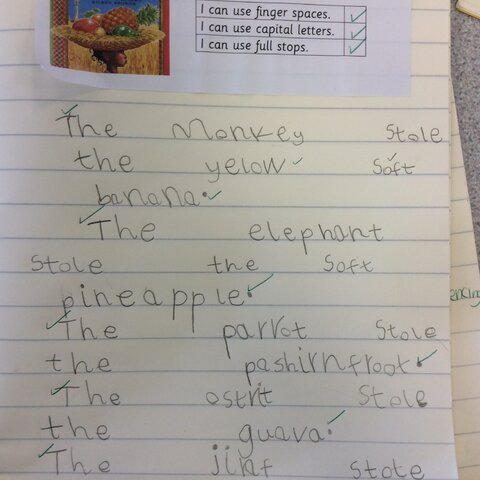 I can use finger spaces.
I can use capital letters.
I can use full stops.
The Monkey Stole
the yelow Soft
banana.
The elephant
Stole the Soft
pineapple.
The parrot Stole
the pashirnfroot.
The ostrit Stole
the guava.
The jinf Stole